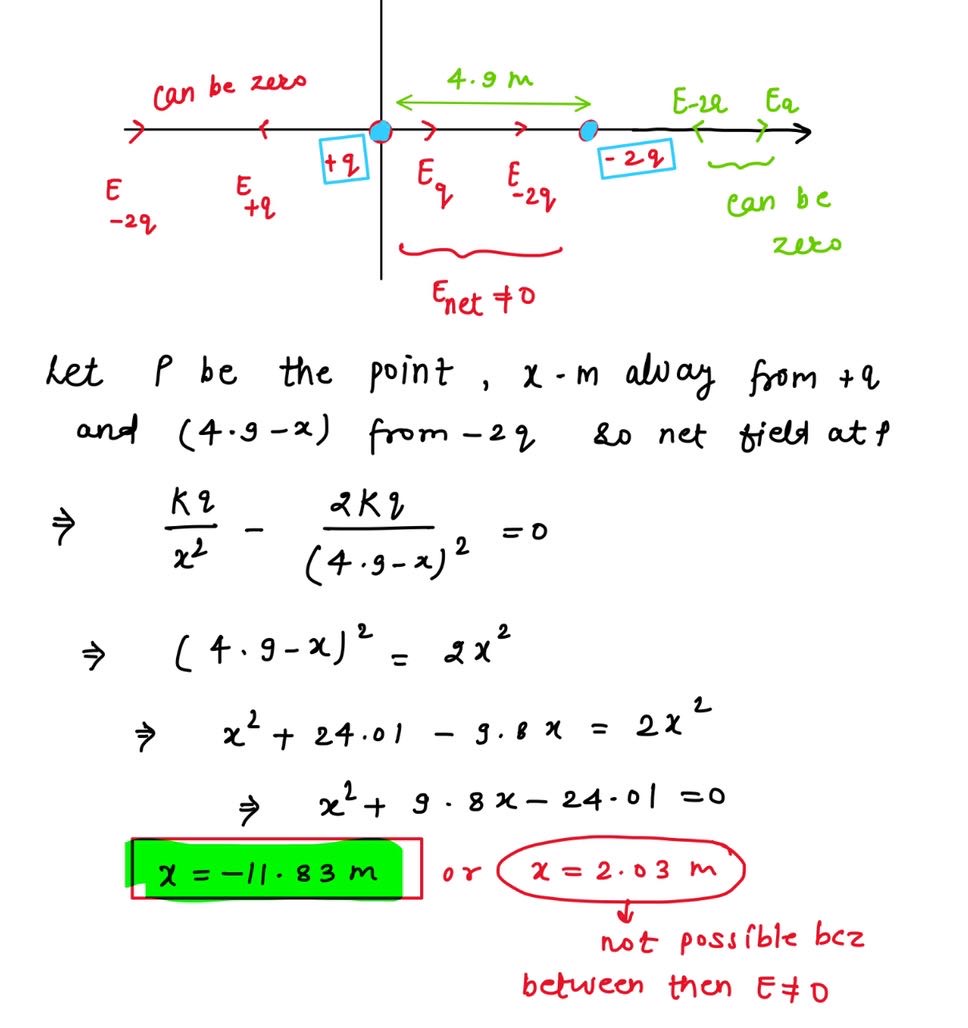 can be zero
4.9 m
E-2q Eq
+q
-2q
E
-2q
E
+q
Eq
E
-2q
can be
zero
Enet ≠ 0
Let P be the point, x-m alway from +q
and (4.9-x) from -2q so net field at P
⇒ Kq/x² - 2Kq/(4.9-x)² = 0
⇒ (4.9-x)² = 2x²
⇒ x² + 24.01 - 9.8x = 2x²
⇒ x² + 9.8x - 24.01 = 0
x = -11.83 m or x = 2.03 m
not possible bcz
between then E≠0